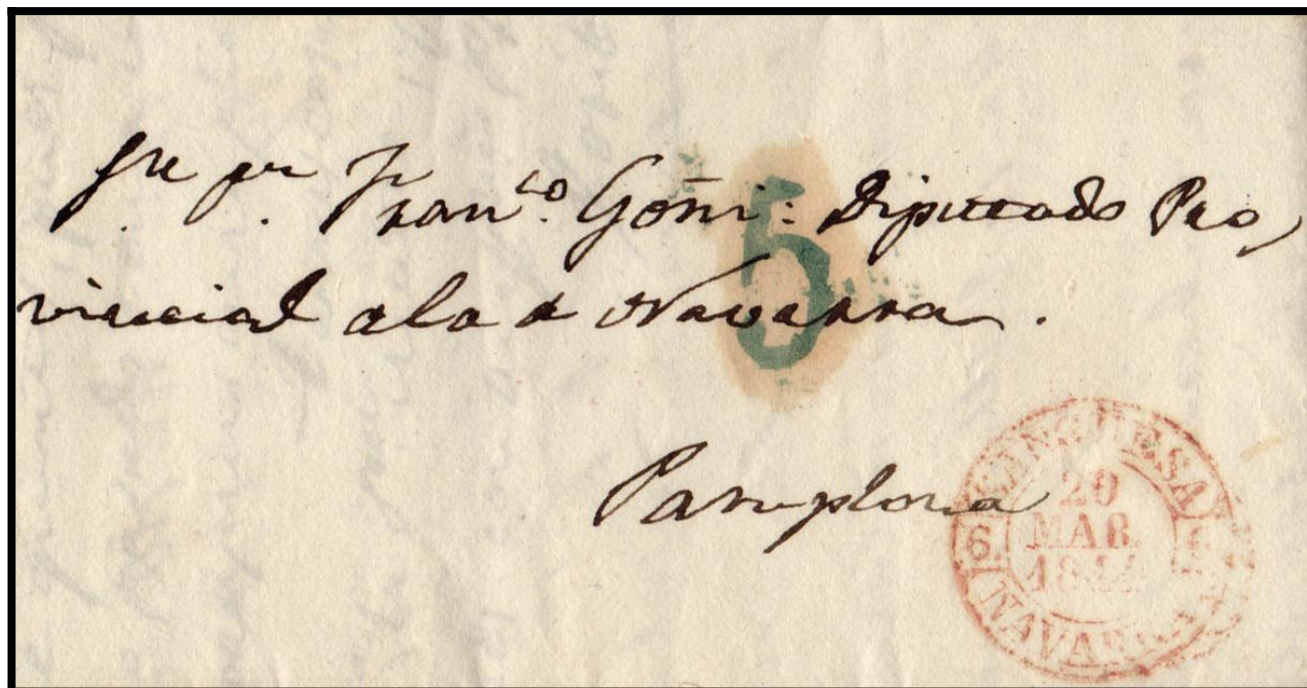 Franco. Goñi: Diputado Pro,
vincial ala Navarra.
5
Pamplona
SANGUESA
20
MAR.
6.
NAVARRA